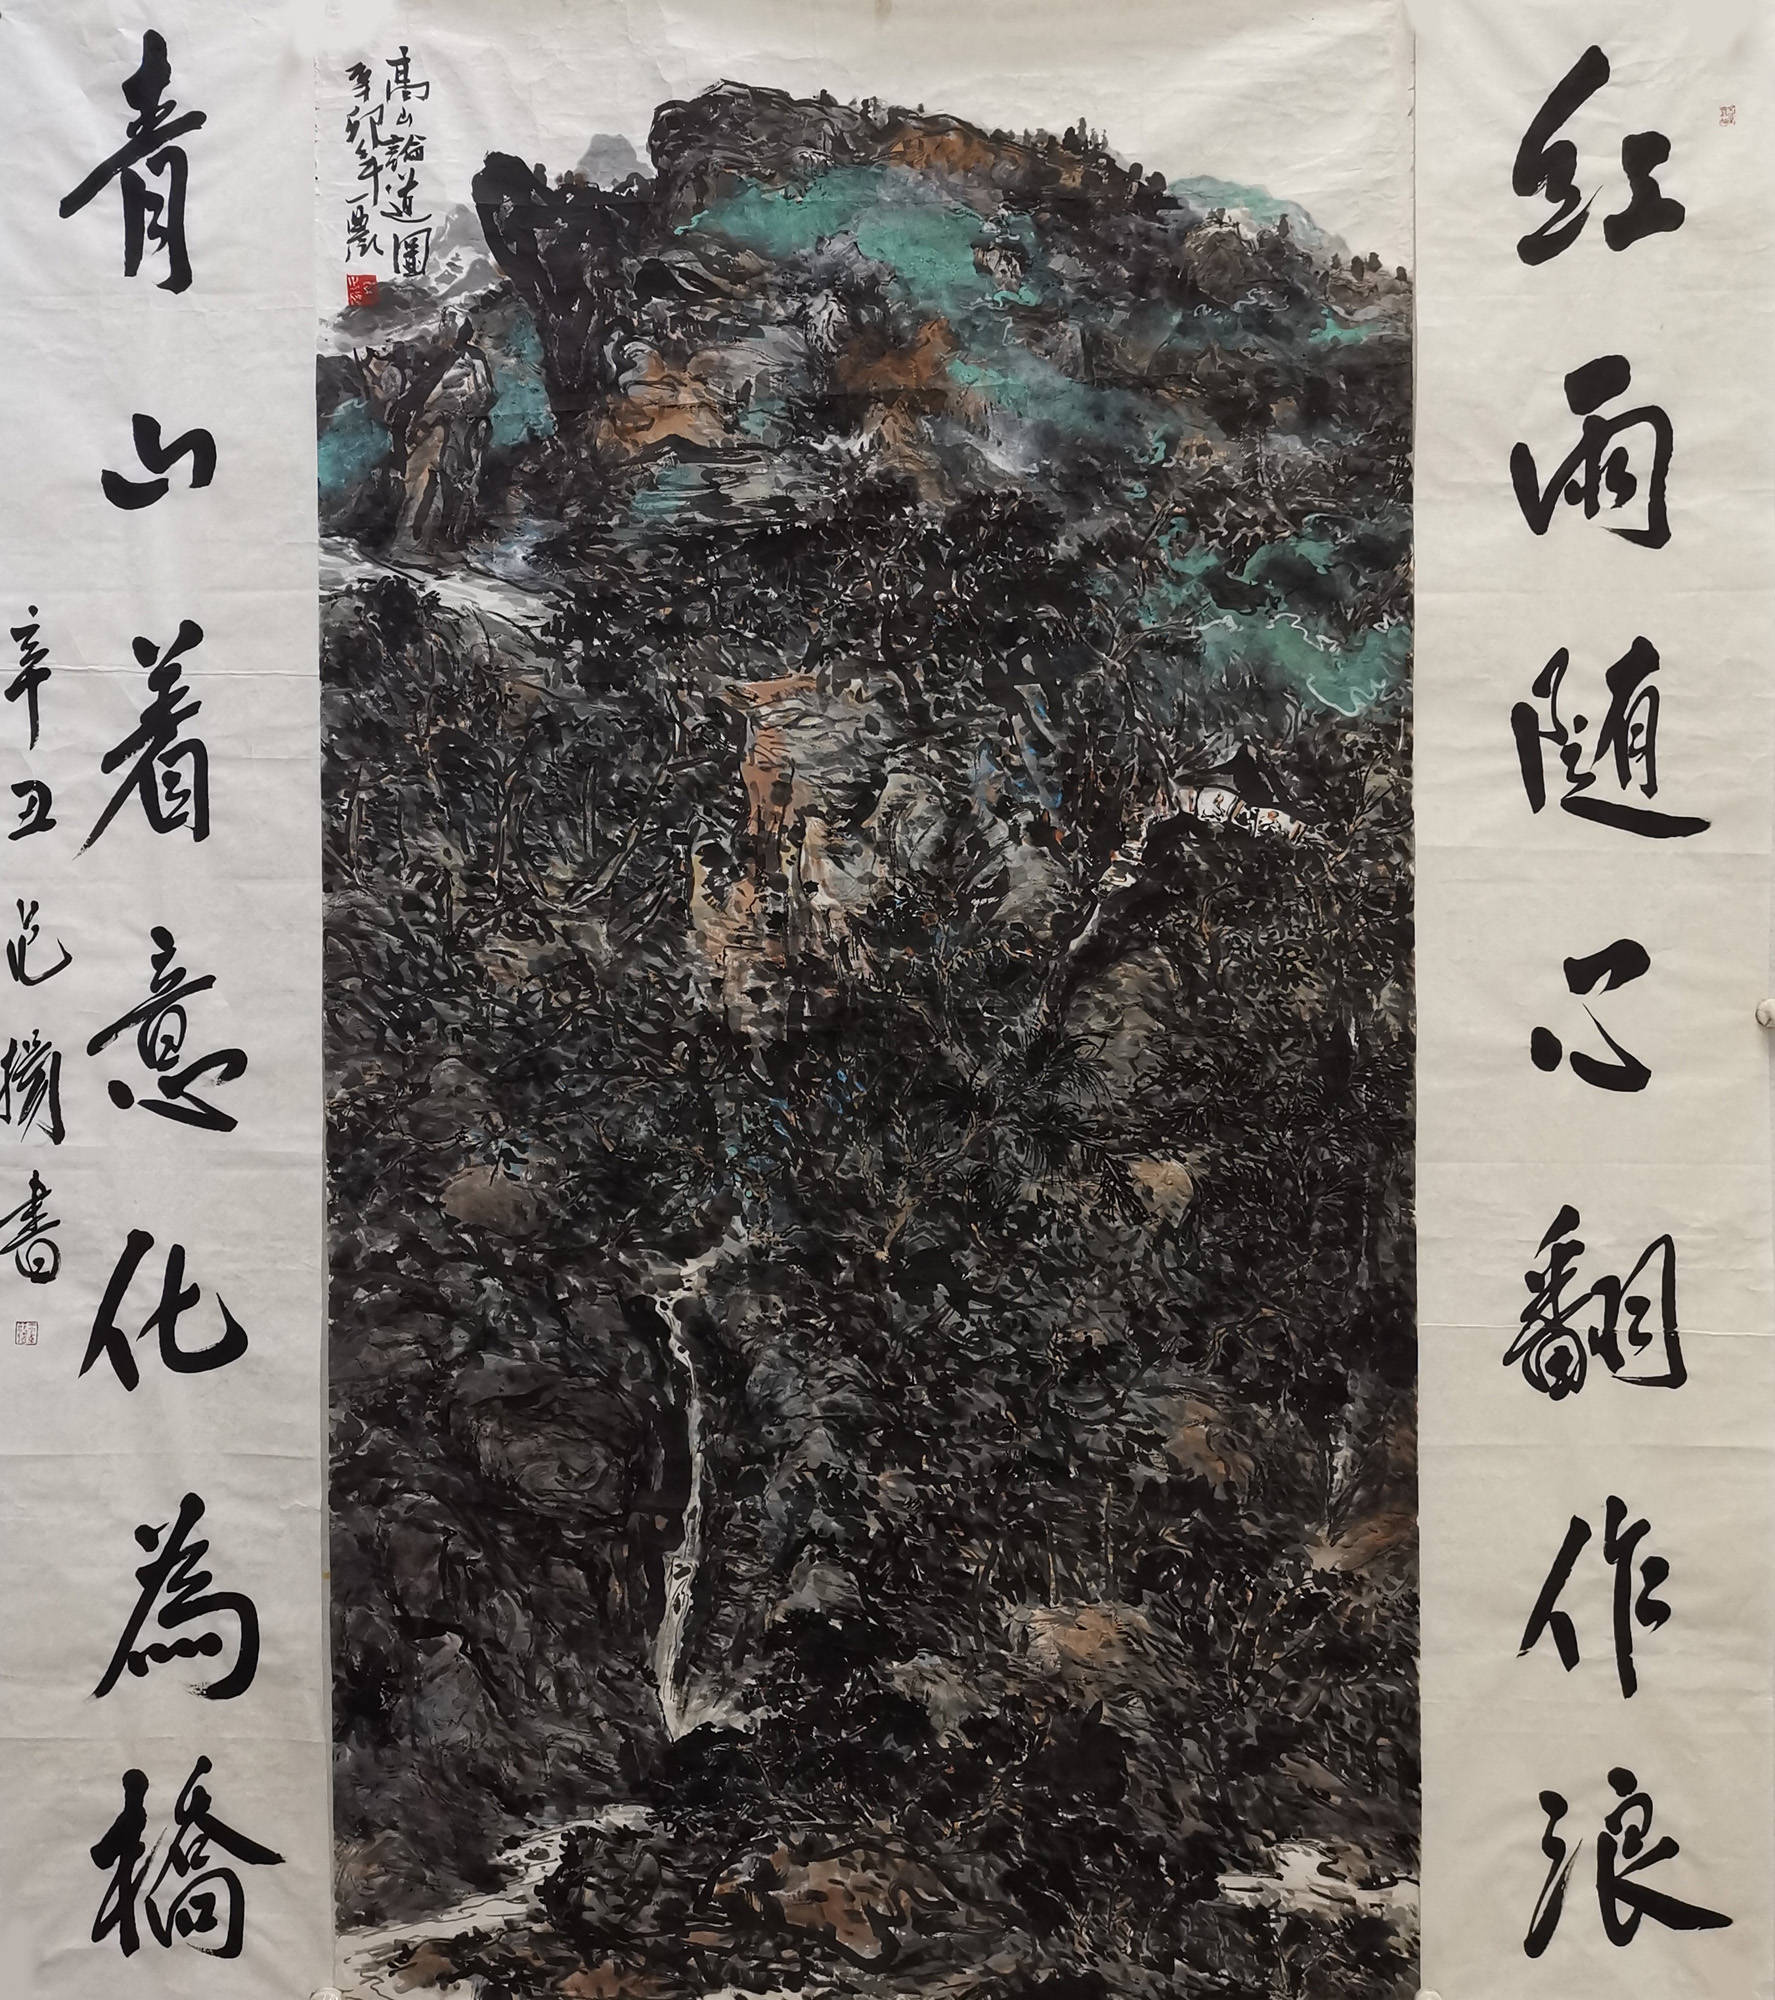 红雨随心翻作浪
高山論道圖
辛卯年一農
青山着意化為橋
辛丑范揚書